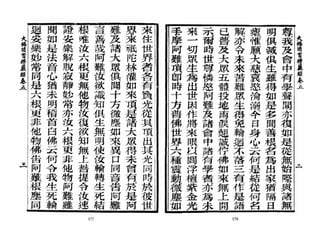 尊我及會中有學聲聞亦復如是從無始際與諸無
明俱滅俱生雖得如是多聞善根名為出家猶隔日
瘧惟願大慈哀愍淪溺今日身心云何是結從何名
解亦令未來苦難眾生得免輪迴不落三有作是語
已普及大眾五體投地雨淚翹誠佇佛如來無上開
示爾時世尊憐愍阿難及諸會中諸有學者亦為未
來一切眾生為出世因作將來眼以閻浮檀紫光金
手摩阿難頂即時十方普佛世界六種震動微塵如
176
來住世界者各有寶光從其頂出其光同時於彼世
界來祇陀林灌如來頂是諸大眾得未曾有於是阿
難及諸大眾俱聞十方微塵如來異口同音告阿難
言善哉阿難汝欲識知俱生無明使汝輪轉生死結
根唯汝六根更無他物汝復欲知無上菩提令汝速
證安樂解脫寂靜妙常亦汝六根更非他物阿難雖
聞如是法音心猶未明稽首白佛云何令我生死輪
迴安樂妙常同是六根更非他物佛告阿難根塵同
177